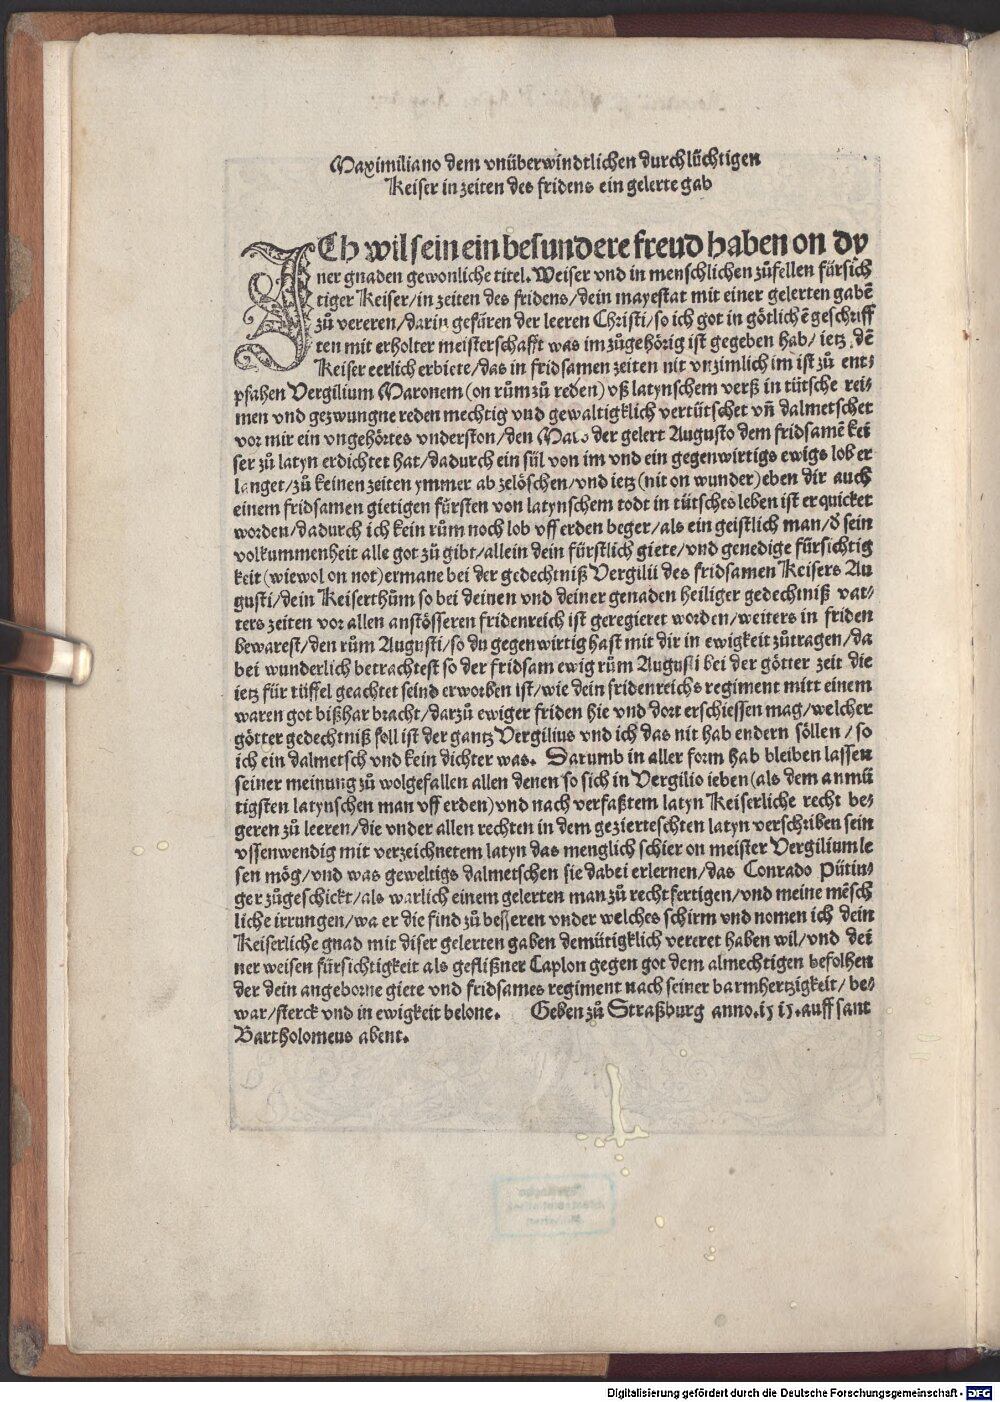 Maximiliano dem vnüberwindtlichen durchlüchtigen
Keiser in zeiten des fridens ein gelerte gab
ICh wil sein ein besundere freud haben on dy
ner gnaden gewonliche titel. Weiser vnd in menschlichen zůfellen fürsich
tiger Keiser/in zeiten des fridens/dein mayestat mit einer gelerten gabē
zů vereren/darin gefaren der leeren Christi/so ich got in götlichē geschriff
ten mit erholter meisterschafft was im zůgehörig ist gegeben hab/ietz dē
Keiser eerlich erbiete/das in fridsamen zeiten nit vnzimlich im ist zů ent⸗
pfahen Vergilium Maronem (on rům zů reden) vß latynschem verß in tütsche rei⸗
men vnd gezwungne reden mechtig vnd gewaltigklich vertütschet vñ dalmetschet
vor mir ein vngehörtes vnderston/den Maro der gelert Augusto dem fridsamē kei
ser zů latyn erdichtet hat/dadurch ein sül von im vnd ein gegenwirtigs ewigs lob er
langet/zů keinen zeiten ymmer ab zelöschen/vnd ietz (nit on wunder) eben dir auch
einem fridsamen gietigen fürsten von latynschem todt in tütsches leben ist erquicket
worden/dadurch ich kein rům noch lob vff erden beger/als ein geistlich man/d̕ sein
volkummenheit alle got zů gibt/allein dein fürstlich giete/vnd genedige fürsichtig
keit (wiewol on not) ermane bei der gedechtniß Vergilii des fridsamen Keisers Au
gusti/dein Keiserthům so bei deinen vnd deiner genaden heiliger gedechtniß vat⸗
ters zeiten vor allen anstösseren fridenreich ist geregieret worden/weiters in friden
bewarest/den rům Augusti/so du gegenwirtig hast mit dir in ewigkeit zůtragen/da
bei wunderlich betrachtest so der fridsam ewig rům Augusti bei der götter zeit die
ietz für tüffel geachtet seind erworben ist/wie dein fridenreichs regiment mitt einem
waren got bißhar bracht/darzů ewiger friden hie vnd dort erschiessen mag/welcher
götter gedechtniß soll ist der gantz Vergilius vnd ich das nit hab endern söllen/so
ich ein dalmetsch vnd kein dichter was. Darumb in aller form hab bleiben lassen
seiner meinung zů wolgefallen allen denen so sich in Vergilio ieben (als dem anmü
tigsten latynschen man vff erden) vnd nach verfaßtem latyn Keiserliche recht be⸗
geren zů leeren/die vnder allen rechten in dem gezierteschten latyn verschriben sein
vssenwendig mit verzeichnetem latyn das menglich schier on meister Vergilium le
sen mög/vnd was geweltigs dalmetschen sie dabei erlernen/das Conrado Pütin⸗
ger zůgeschickt/als warlich einem gelerten man zů rechtfertigen/vnd meine mēsch
liche irrungen/wa er die find zů besseren vnder welches schirm vnd nomen ich dein
Keiserliche gnad mit diser gelerten gaben demütigklich vereret haben wil/vnd dei
ner weisen fürsichtigkeit als geflißner Caplon gegen got dem almechtigen befolhen
der dein angeborne giete vnd fridsames regiment nach seiner barmhertzigkeit/be⸗
war/sterck vnd in ewigkeit belone. Geben zů Straßburg anno.15 15.auff sant
Bartholomeus abent.
Digitalisierung gefördert durch die Deutsche Forschungsgemeinschaft - DFG